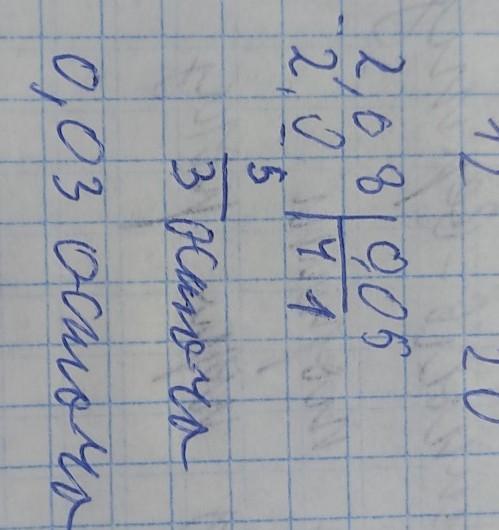 2,08 0,05
2,0 41
5
3 остача
0,03 остача